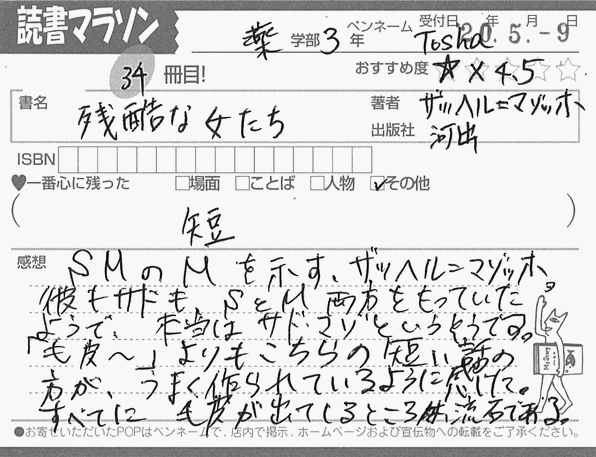 読書マラソン
薬 学部 3 年
ペンネーム Tosha
受付日 年 月 日
20.5.-9
34 冊目!
おすすめ度 ☆×4.5
書名 残酷な女たち
著者 ザッヘル=マゾッホ
出版社 河出
ISBN
♥一番心に残った □場面 □ことば □人物 ☑その他
( 短 )
感想 SMのMを示す、ザッヘル=マゾッホ。
彼もサドも SとM両方をもっていた
ようで、本当は サド・マゾというそうです。
「毛皮〜」よりもこちらの短い話の
方が、うまく作られているように感じた。
すべてに 毛皮が出てくるところ 流石である。
●お寄せいただいたPOPはペンネームで、店内で掲示、ホームページおよび宣伝物への転載をご了承ください。